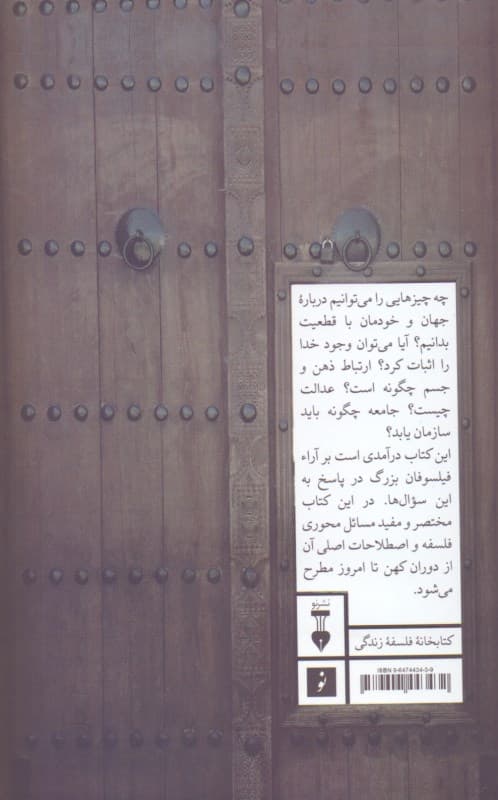 چه چیزهایی را می‌توانیم دربارهٔ
جهان و خودمان با قطعیت
بدانیم؟ آیا می‌توان وجود خدا
را اثبات کرد؟ ارتباط ذهن و
جسم چگونه است؟ عدالت
چیست؟ جامعه چگونه باید
سازمان یابد؟
این کتاب درآمدی است بر آراء
فیلسوفان بزرگ در پاسخ به
این سؤال‌ها. در این کتاب
مختصر و مفید مسائل محوری
فلسفه و اصطلاحات اصلی آن
از دوران کهن تا امروز مطرح
می‌شود.
نشرنو
کتابخانهٔ فلسفهٔ زندگی
نو